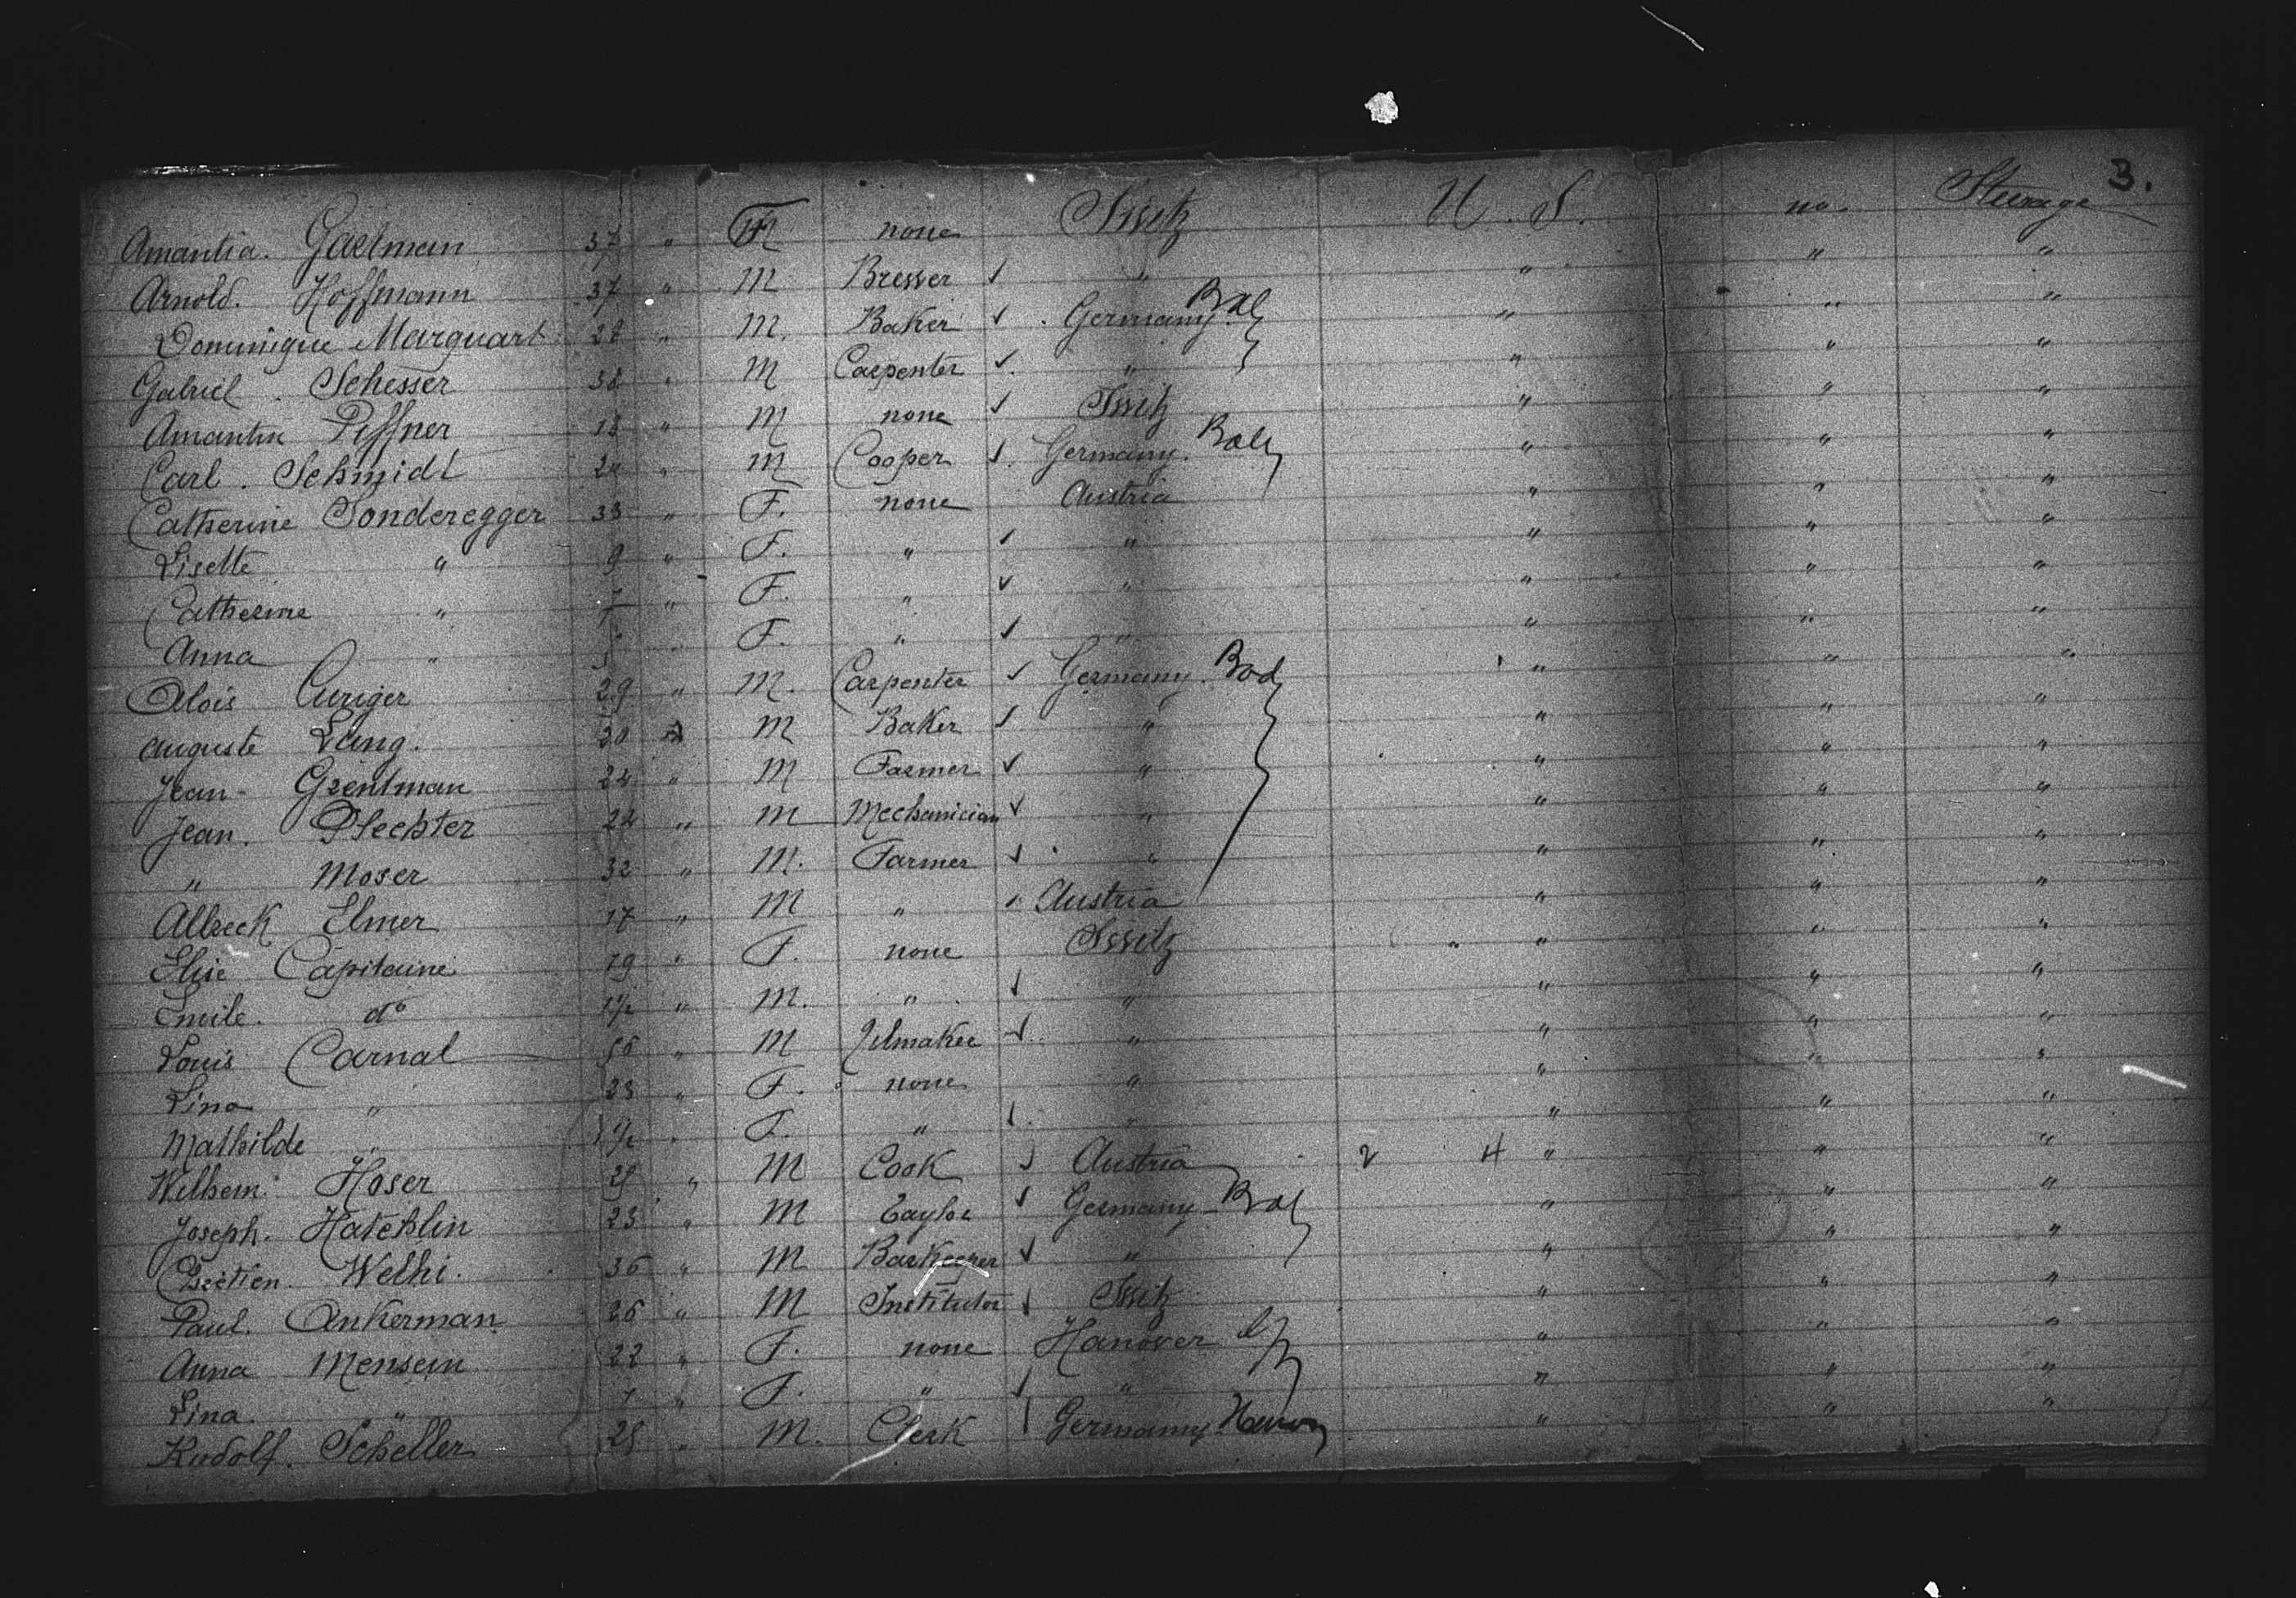 3.
Amantia. Gaelman 37 " F none Switz U. S. no. Steerage
Arnold. Hoffmann 37 " M Bresser ✓ " " " "
Dominique Marquart 28 " M. Baker ✓ Germany Bal " " "
Gabriel. Schesser 38 " M Carpenter ✓ " " " "
Amantin Piffner 18 " M none ✓ Switz " " "
Carl. Schmidt 24 " M Cooper ✓ Germany. " " "
Catherine Sonderegger 33 " F. none Austria " " "
Lisette " 9 " F. " ✓ " " " "
Catherine " 7 " F. " ✓ " " " "
Anna " " F. " ✓ " " " "
Alois Curiger 29 " M. Carpenter ✓ Germany. Bad " " "
Auguste Lang. 20 " M Baker ✓ " " " "
Jean Grentman 24 " M Farmer ✓ " " " "
Jean. Plechter 22 " M Mechanician ✓ " " " "
" Moser 32 " M. Farmer ✓ " " " "
Albreck Elmer 17 " M " ✓ Austria " " "
Elise Capitaine 19 " F. none Switz " " "
Emile. do 1½ " M. " ✓ " " " "
Louis Carnal 56 " M ✓ " " " "
Lina " 23 " F. none " " " "
Mathilde " 1½ " F. " ✓ " " " "
Wilhem. Hoser 25 " M Cook ✓ Austria " " "
Joseph. Hatchlin 23 " M Taylor ✓ Germany Bal " " "
Welhi. 36 " M Barkeeper ✓ " " " "
Paul. Ankerman 26 " M Institutor ✓ Switz " " "
Anna Mensein 22 " F. none Hanover " " "
Lina. " 7 " F. " ✓ " " " "
Rudolf. Scheller 25 " M. Clerk Germany " " "